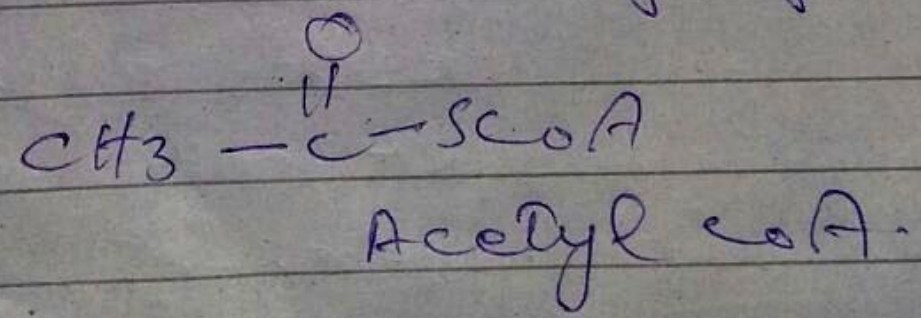 O
||
CH3 - C - SCoA
Acetyl coA.